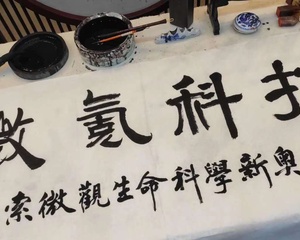 氪科技
索微觀生命科學新奧